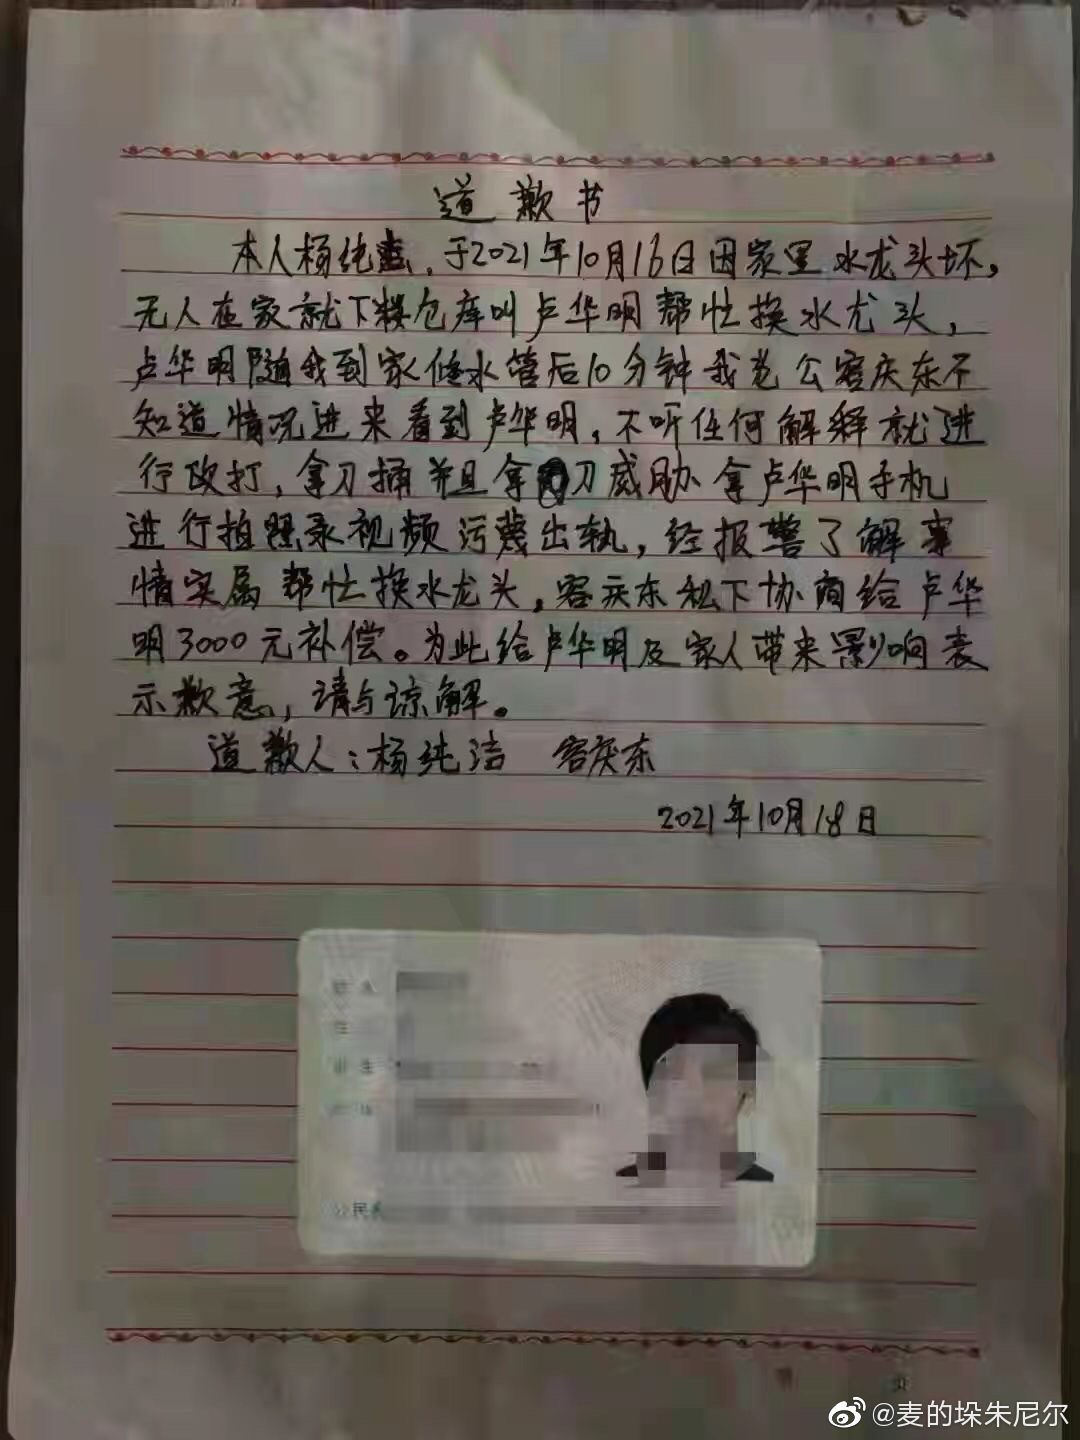 道歉书
本人杨纯洁，于2021年10月16日因家里水龙头坏，
无人在家就下楼仓库叫卢华明帮忙换水龙头，
卢华明随我到家修水管后10分钟我老公客庆东不
知道情况进来看到卢华明，不听任何解释就进
行攻打，拿刀捅并且拿刀威胁拿卢华明手机
进行拍照录视频污蔑出轨，经报警了解事
情实属帮忙换水龙头，客庆东私下协商给卢华
明3000元补偿。为此给卢华明及家人带来影响表
示歉意，请与谅解。
道歉人：杨纯洁 客庆东
2021年10月18日
公民
页
@麦的垛朱尼尔